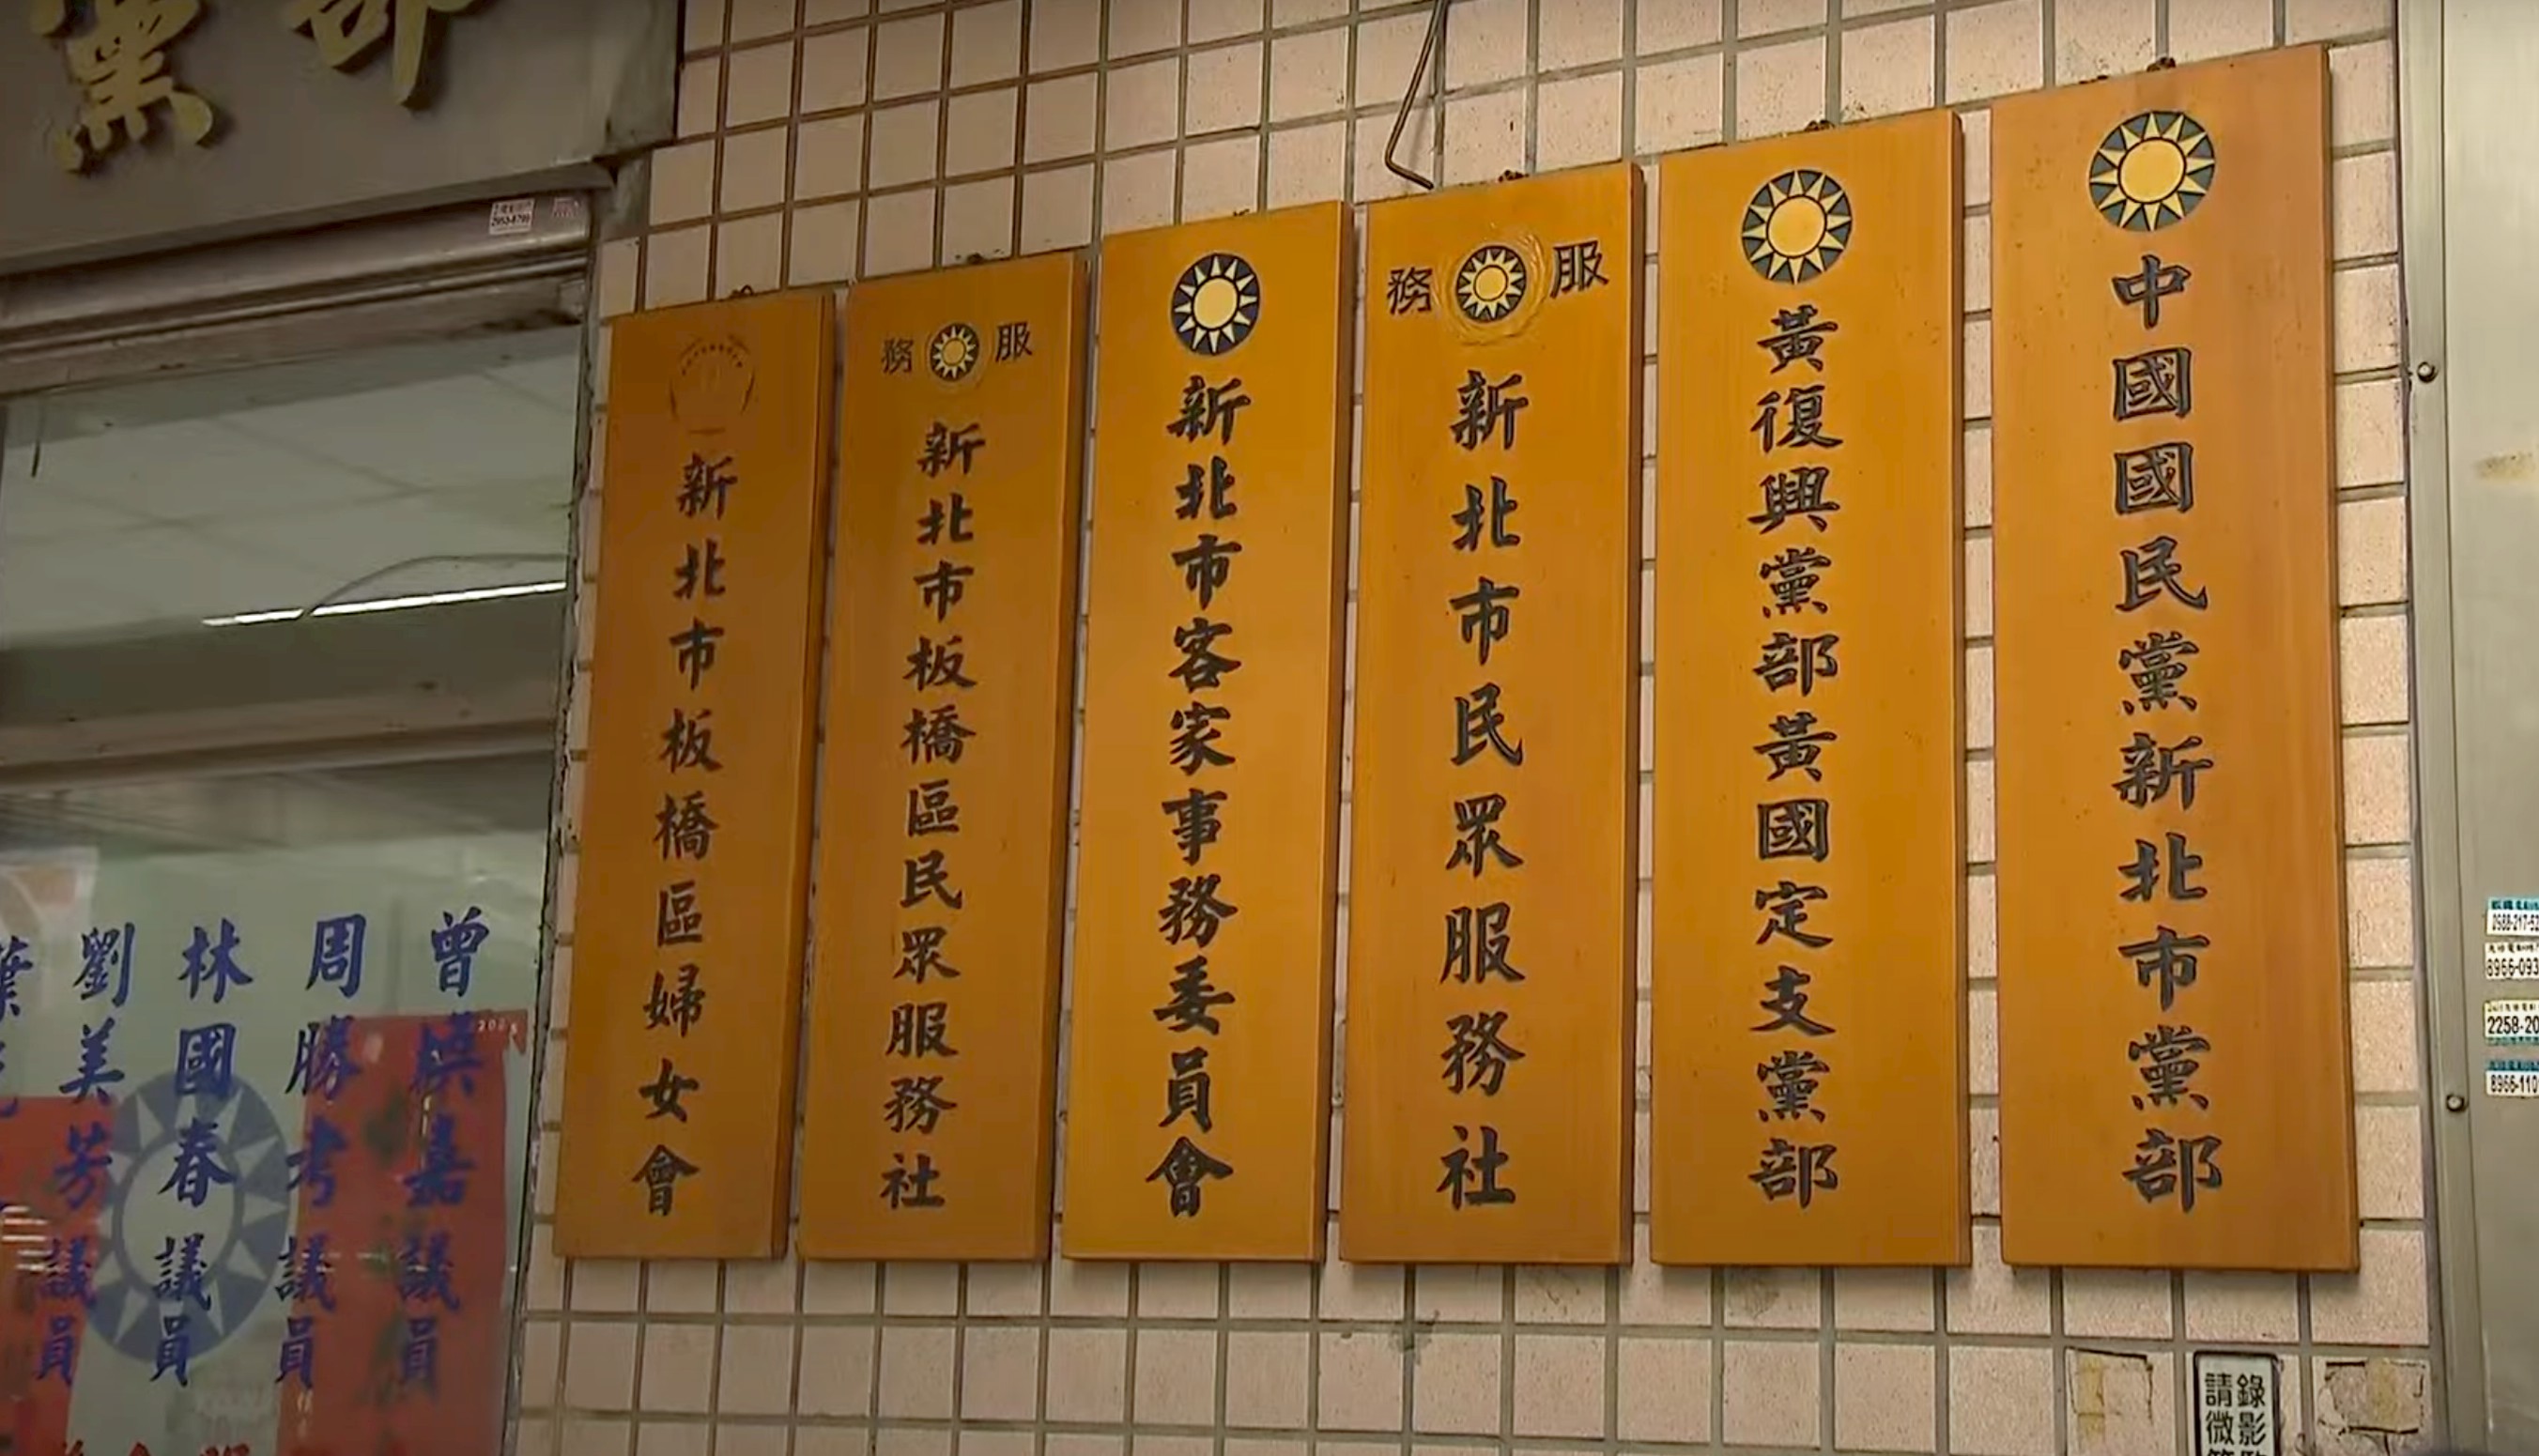 黨部
中國國民黨新北市黨部
黃復興黨部黃國定支黨部
服務
新北市民眾服務社
新北市客家事務委員會
服務
新北市板橋區民眾服務社
新北市板橋區婦女會
曾煥嘉議員
周勝考議員
林國春議員
劉美芳議員
葉
錄影
請微
8966-093
2258-20
8966-110